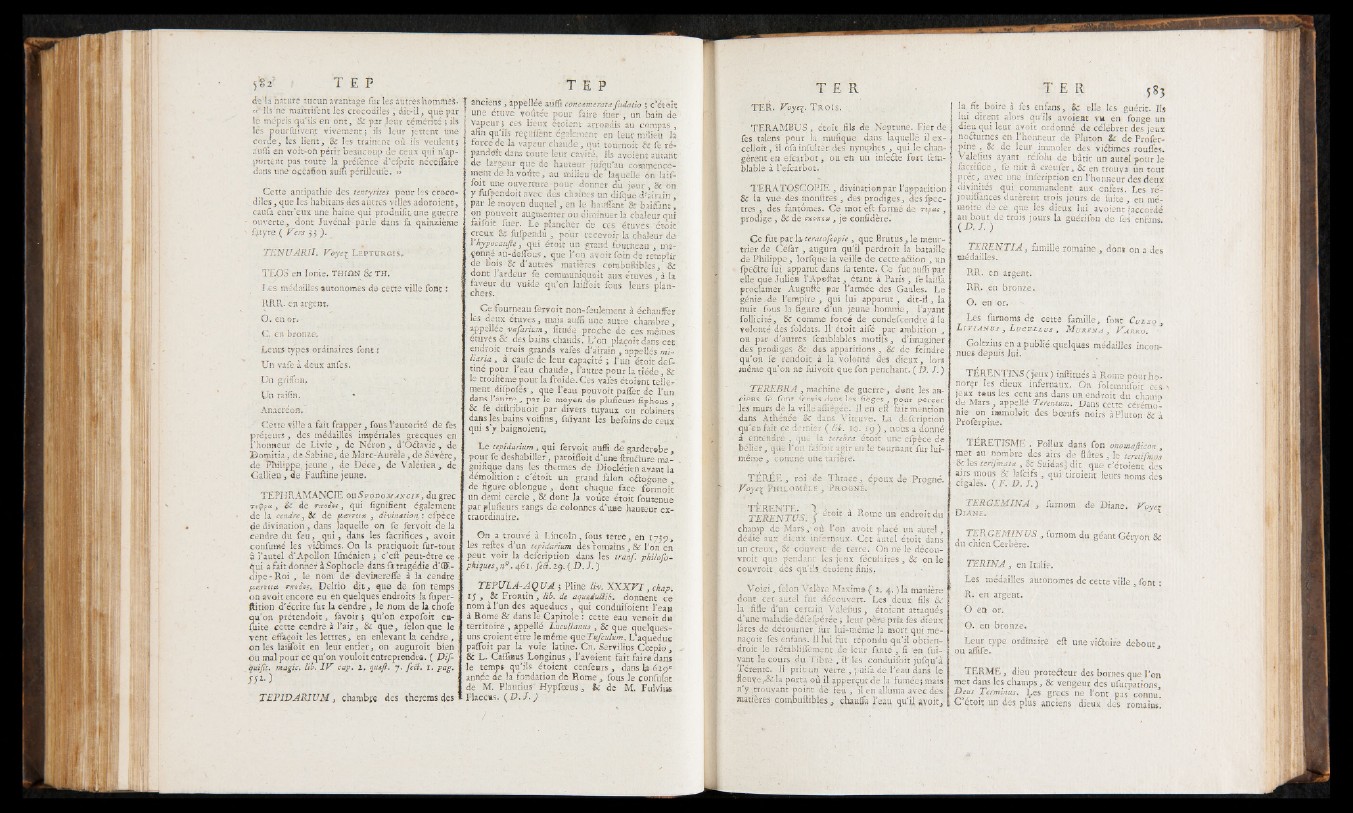 582 T E P
de la nature aucun avantage sur les autres hommes.
« Ils ne maîtrisent les crocodilles, dit-il, que par
le mépris qu'ils en ont, & par leur témérité ; ils
les poursuivent vivement ; ils leur jettent une
corde, les lient, & les trainent où ils veulent ;
aussi en voit-on périr beaucoup de ceux qui n'ap-
portent pas toute la présence d'esprit nécessaire
dans une occasion aussi périlleuse. »
Cette antipathie des tentyrites pour les croco-
diles, que les habitans des autres villes adoroient,
causa entr'eux une haine qui produisit une guerre
ouverte, dont Juvénal parle dans sa quinzième
satyre ( Vers 33 ).
TENUARII. Voyez LEPTURGES.
TEOS en Ionie. THIΩN & TH.
Les médailles autonomes de cette ville sont :
RRR. en argent.
O. en or.
C. en bronze.
Leurs types ordinaires sont :
Un vase à deux anses.
Un griffon.
Un raisin.
Anacréon.
Cette ville a fait frapper, sous l'autorité de ses
préteurs, des médailles impériales grecques en
l'honneur de Livie, de Néron, d'Octavie, de
Domitia, de Sabine, de Marc-Aurèle, de Sévère,
de Philippe jeune, de Dece, de Valérien, de
Gallien, de Faustine jeune.
TÉPHRAMANCIE ou SPODOMANCIE, du grec
τεφρα, & de σποδος, qui signifient également
de la cendre, & de μαντεια, divination : espèce
de divination, dans laquelle on se servoit de la
cendre du feu, qui, dans les sacrifices, avoit
consumé les victimes. On la pratiquoit sur-tout
à l'autel d'Apollon Isménien ; c'est peut-être ce
qui a fait donner à Sophocle dans sa tragédie d'Œ-
dipe-Roi, le nom de devineresse à la cendre
μαντεια σποδος. Delrio dit, que de son temps
on avoit encore eu en quelques endroits la super-
stition d'écrire sur la cendre, le nom de la chose
qu'on prétendoit, savoir ; qu'on exposoit en-
suite cette cendre à l'air, & que, selon que le
vent effaçoit les lettres, en enlevant la cendre,
on les laissoit en leur entier, on auguroit bien
ou mal pour ce qu'on vouloit entreprendre. ( Dis-
quisit. magic. lib. IV cap. 2. quæst. 7. sect. 1. pag.
552. )
TEPIDARIUM, chambre des thermes des
T E P
anciens, appellée aussi concamerata sudatio ; c'étoit
une étuve voûtée pour faire suer, un bain de
vapeur ; ces lieux étoient arrondis au compas,
afin qu'ils reçussent également en leur milieu la
force de la vapeur chaude, qui tournoit & se ré-
pandoit dans toute leur cavité. Ils avoient autant
de largeur que de hauteur jusqu'au commence-
ment de la voûte, au milieu de laquelle on lais-
soit une ouverture pour donner du jour, & on
y suspendoit avec des chaînes un disque d'airain,
par le moyen duquel, en le haussant & baissant,
on pouvoit augmenter ou diminuer la chaleur qui
faisoit suer. Le plancher de ces étuves étoit
creux & suspendu, pour recevoir la chaleur de
l'hypocauste, qui étoit un grand fourneau, ma-
çonné au-dessous, que l'on avoit soin de remplir
de bois & d'autres matières combustibles, &
dont l'ardeur se communiquoit aux étuves, à la
faveur du vuide qu'on laissoit sous leurs plan-
chers.
Ce fourneau servoit non-seulement à échauffer
les deux étuves, mais aussi une autre chambre,
appellée vasarium, située proche de ces mêmes
étuves & des bains chauds. L'on plaçoit dans cet
endroit trois grands vases d'airain, appellés mi-
liaria, à cause de leur capacité ; l'un étoit des-
tiné pour l'eau chaude, l'autre pour la tiède, &
le troisième pour la froide. Ces vases étoient telle-
ment disposés, que l'eau pouvoit passer de l'un
dans l'autre, par le moyen de plusieurs siphons,
& se distribuoit par divers tuyaux ou robinets
dans les bains voisins, suivant les besoins de ceux
qui s'y baignoient.
Le tepidarium, qui servoit aussi de garderobe,
pour se deshabiller, paroissoit d'une structure ma-
gnifique dans les thermes de Dioclétien avant la
démolition : c'étoit un grand salon octogone,
de figure oblongue, dont chaque face formoit
un demi cercle, & dont la voûte étoit soutenue
par plusieurs rangs de colonnes d'une hauteur ex-
traordinaire.
On a trouvé à Lincoln, sous terre, en 1739,
les restes d'un tepidarium des romains, & l'on en
peut voir la description dans les trans. philoso-
phiques, n°. 461. sect. 29. ( D. J. )
TEPULA-AQUA ; Pline liv. XXXVI, chap.
15, & Frontin, lib. de aquæductib. donnent ce
nom à l'un des aqueducs, qui conduisoient l'eau
à Rome & dans le Capitole : cette eau venoit du
territoire, appellé Lucullanus, & que quelques-
uns croient être le même que Tusculum. L'aqueduc
passoit par la voie latine. Cn. Servilius Cœpio,
& L. Cassinus Longinus, l'avoient fait faire dans
le temps qu'ils étoient censeurs, dans la 629e
année de la fondation de Rome, sous le consulat
de M. Plautius Hypsœus, & de M. Fulvius
Flaccus. ( D. J. )
T E R
TER. Voyez. TROIS.
TERAMBUS, étoit fils de Neptune. Fier de
ses talens pour la musique dans laquelle il ex-
celloit, il osa insulter des nymphes, qui le chan-
gèrent en escarbot, ou en un insecte fort sem-
blable à l'escarbot.
TERATOSCOPIE, divination par l'apparition
& la vue des monstres, des prodiges, des spec-
tres, des fantômes. Ce mot est formé de τερας,
prodige, & de σκοπεω, je considère.
Ce fut par la teratoscopie, que Brutus, le meur-
trier de César, augura qu'il perdroit la bataille
de Philippe, lorsque la veille de cette action, un
spectre lui apparut dans sa tente. Ce fut aussi par
elle que Julien l'Apostat, étant à Paris, se laissa
proclamer Auguste par l'armée des Gaules. Le
génie de l'empire, qui lui apparut, dit-il, la
nuit sous la figure d'un jeune homme, l'ayant
sollicité, & comme forcé de condescendre à la
volonté des soldats. Il étoit aisé par ambition,
ou par d'autres semblables motifs, d'imaginer
des prodiges & des apparitions, & de feindre
qu'on se rendoit à la volonté des dieux, lors
même qu'on ne suivoit que son penchant. ( D. J. )
TEREBRA, machine de guerre, dont les an-
ciens se sont servis dans les sièges, pour percer
les murs de la ville assiégée. Il en est fait mention
dans Athénée & dans Vitruve. La description
qu'en fait ce dernier ( lib. 10. 19 ), nous a donné
à entendre, que la terebra étoit une espèce de
bélier, que l'on faisoit agir en le tournant sur lui-
même, comme une tarière.
TÉRÉE, roi de Thrace, époux de Progné.
Voyez PHILOMÈLE, PROGNÉ.
TÉRENTE.
TERENTUS. } étoit à Rome un endroit du
champ de Mars, où l'on avoit placé un autel,
dédié aux dieux infernaux. Cet autel étoit dans
un creux, & couvert de terre. On ne le décou-
vroit que pendant les jeux séculaires, & on le
couvroit dès qu'ils étoient finis.
Voici, selon Valère Maxime ( 2. 4. ) la manière
dont cet autel fut découvert. Les deux fils &
la fille d'un certain Valesius, étoient attaqués
d'une maladie désespérée, leur père pria ses dieux
lares de détourner sur lui-même la mort qui me-
naçoit ses enfans. Il lui fut répondu qu'il obtien-
droit le rétablissement de leur santé, si en sui-
vant le cours du Tibre, il les conduisoit jusqu'à
Térente. Il prit un verre, puisa de l'eau dans le
fleuve, & la porta où il apperçut de la fumée ; mais
n'y trouvant point de feu, il en alluma avec des
matières combustibles, chauffa l'eau qu'il avoit,
T E R 583
la fit boire à ses enfans, & elle les guérit. Ils
lui dirent alors qu'ils avoient vu en songe un
dieu qui leur avoit ordonné de célébrer des jeux
nocturnes en l'honneur de Pluton & de Proser-
pine, & de leur immoler des victimes rousses.
Valesius ayant résolu de bâtir un autel pour le
sacrifice, se mit à creuser, & en trouva un tout
prêt, avec une inscription en l'honneur des deux
divinités qui commandent aux enfers. Les ré-
jouissances durèrent trois jours de suite, en mé-
moire de ce que les dieux lui avoient accordé
au bout de trois jours la guérison de ses enfans.
( D. J. )
TERENTIA, famille romaine, dont on a des
médailles.
RR. en argent.
RR. en bronze.
O. en or.
Les surnoms de cette famille, sont CULEO,
LIVIANUS, LUCULLUS, MURENA, VARRO.
Goltzius en a publié quelques médailles incon-
nues depuis lui.
TÉRENTINS ( jeux ) institués à Rome pour ho-
norer les dieux infernaux. On solemnisoit ces
jeux tous les cent ans dans un endroit du champ
de Mars, appellé Terentum. Dans cette cérémo-
nie on immoloit des bœufs noirs à Pluton & à
Proserpine.
TÉRETISME. Pollux dans son onomasticon,
met au nombre des airs de flûtes, le teretismos
& les teretismata, & Suidas dit que c'étoient des
airs mous & lascifs, qui tiroient leurs noms des
cigales. ( V. D. J. )
TERGEMINA, surnom de Diane. Voyez
DIANE.
TERGEMINUS, surnom du géant Géryon &
du chien Cerbère.
TERINA, en Italie.
Les médailles autonomes de cette ville, sont :
R. en argent.
O en or.
O. en bronze.
Leur type ordinaire est une victoire debout,
ou assise.
TERME, dieu protecteur des bornes que l'on
met dans les champs, & vengeur des usurpations,
Deus Terminus. Les grecs ne l'ont pas connu.
C'étoit un des plus anciens dieux des romains.